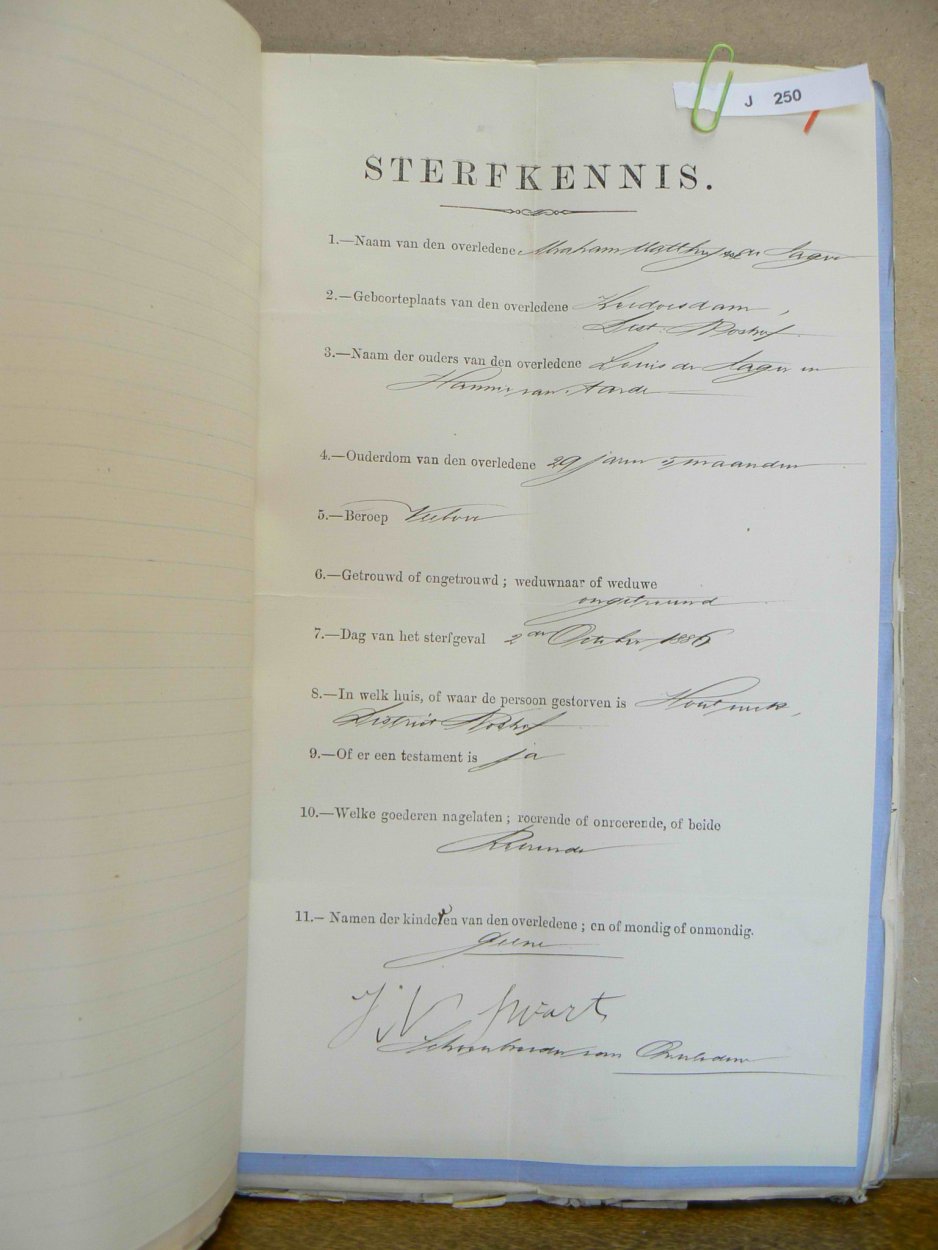 J 250
STERFKENNIS.
1.—Naam van den overledene Abraham de Jager
2.—Geboorteplaats van den overledene
Dist. Boshof
3.—Naam der ouders van den overledene Louis de Jager en
Hannie van Aarde
4.—Ouderdom van den overledene 29 jaren 5 maanden
5.—Beroep Veeboer
6.—Getrouwd of ongetrouwd ; weduwnaar of weduwe
ongetrouwd
7.—Dag van het sterfgeval 2den October 1886
8.—In welk huis, of waar de persoon gestorven is
District Boshof
9.—Of er een testament is ja
10.—Welke goederen nagelaten ; roerende of onroerende, of beide
Roerende
11.— Namen der kinderen van den overledene ; en of mondig of onmondig.
geene
Swart
van Overledene